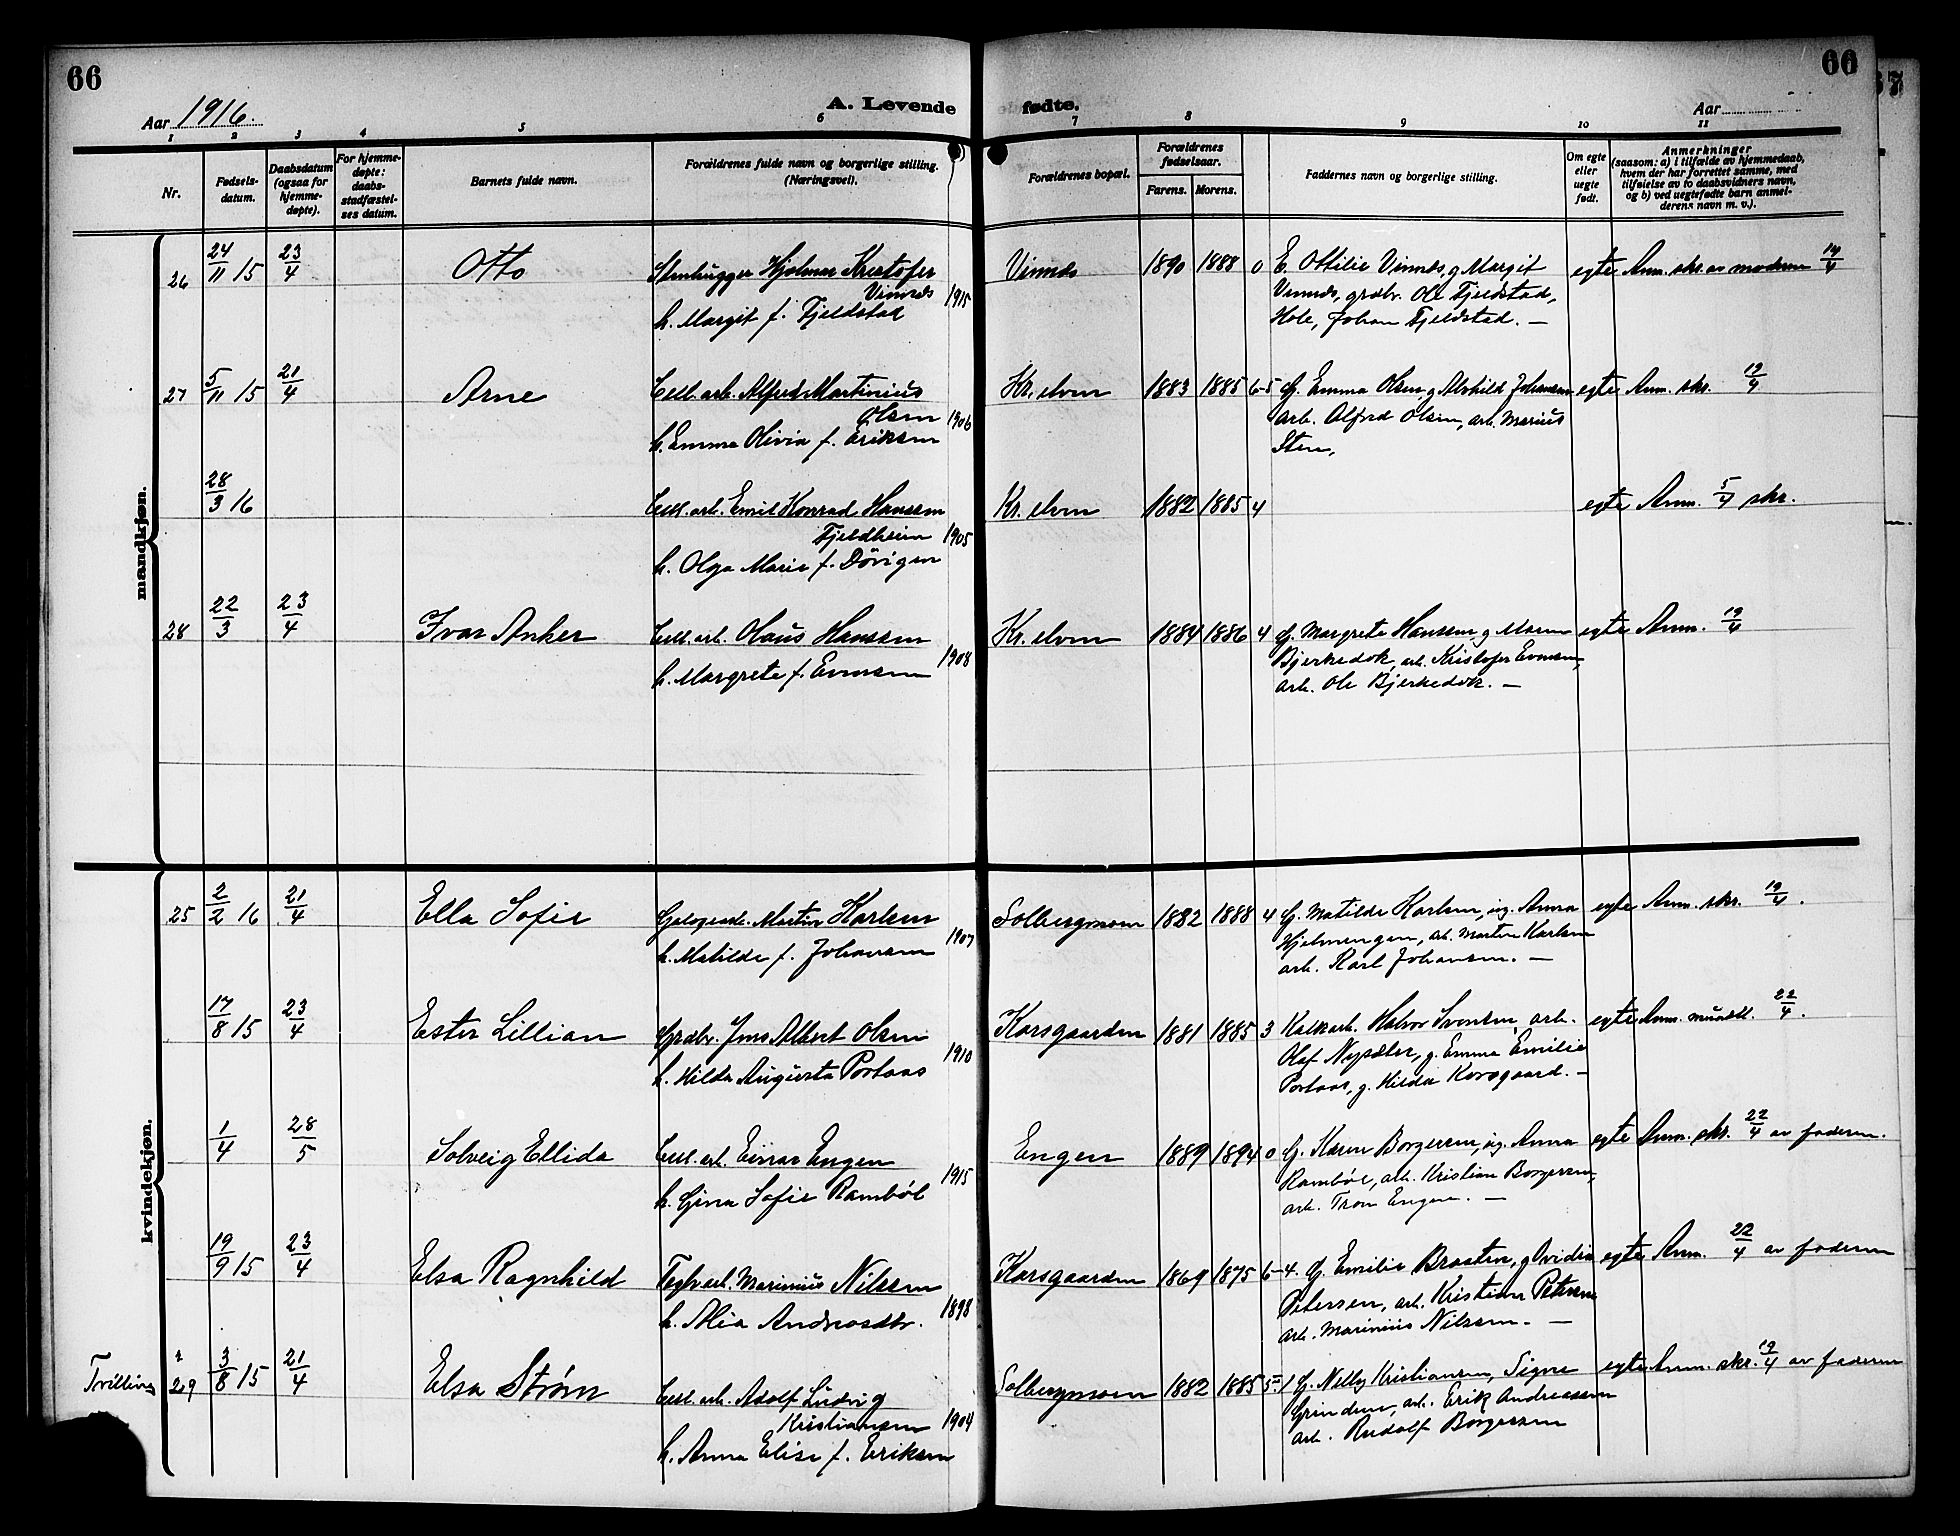 66
Aar 1916.
A. Levende
fødte.
66
Aar
1 2 3 4 5 6 7 8 9 10 11
Nr.
Fødsels-
datum.
Daabsdatum
(ogsaa for
hjemme-
døpte).
For hjemme-
døpte:
daabs-
stadfæstel-
ses datum.
Barnets fulde navn.
Forældrenes fulde navn og borgerlige stilling.
(Næringsvei).
Forældrenes bopæl.
Forældrenes
fødselsaar.
Farens. Morens.
Faddernes navn og borgerlige stilling.
Om egte
eller
uegte
født.
Anmerkninger
(saasom: a) i tilfælde av hjemmedaab,
hvem der har forrettet samme, med
tilføielse av to daabsvidners navn,
og b) ved uegtefødte barn anmel-
derens navn m. v.).
mandkjøn.
26 24/11 15 23/4 Otto Stenhugger Hjalmar Kristofer Vinnes 1890 1888 0 E. Ottilie Vinnes, g Margit egte Anm. skr. av moderen 19/4
Vinnes 1915 Vinnes, grdbr. Ole Fjeldstad,
h. Margit f. Fjeldstad Hole, Johan Fjeldstad. —
27 5/11 15 21/4 Arne Cell. arb. Alfred Martinius Kr. elven 1883 1885 6-5 G. Emma Olsen, g Alvhild Johansen egte Anm. skr. 19/4
Olsen 1906 arb. Alfred Olsen, arb. Marius
h. Emma Olivia f. Eriksen Sten,
28/3 16 Cell. arb. Emil Konrad Hansen Kr. elven 1882 1885 4 egte Anm. 5/4 skr.
Fjeldheim 1905
h. Olga Marie f. Dövigen
28 22/3 23/4 Ivar Anker Cell. arb. Olaus Hansen Kr. elven 1884 1886 4 G. Margrete Hansen, g Maren egte Anm. 19/4
1908 Bjerkedok, arb. Kristofer Evensen,
h. Margrete f. Evensen arb. Ole Bjerkedok. —
kvindekjøn.
25 2/2 16 21/4 Ella Sofie Martin Karlsen Solbergmoen 1882 1888 4 G. Matilde Karlsen, ug. Anna egte Anm. skr. 19/4.
1907 Hjelmengen, arb. Martin Karlsen
h. Matilde f. Johansen arb. Karl Johansen. —
17/8 15 23/4 Ester Lillian Grdbr. Jens Albert Olsen Korsgaarden 1881 1885 3 Kalkarb. Halvor Svensen, arb. egte Anm. mundtl. 22/4.
1910 Olaf Nysæter, g. Emma Emilie
h. Hilda Augusta Portaas Portaas, g. Hilda Korsgaard. —
1/4 28/5 Solveig Ellida Cell. arb. Einar Engen Engen 1889 1894 0 G. Karen Borgersen, ug. Anna egte Anm. skr. 22/4 av faderen.
1915 Rambøl, arb. Kristian Borgersen,
h. Gina Sofie Rambøl arb. Tron Engen. —
19/9 15 23/4 Elsa Ragnhild Teglv. arb. Marinius Nilssen Korsgaarden 1869 1875 6-4. G. Emilie Braaten, g Ovidia egte Anm. 22/4 av faderen
1898 Petersen, arb. Kristian Petersen
h. Alia Andreasdtr. arb. Marinius Nilssen. —
Tvilling 29 3/8 15 21/4 Elsa Strøm Cell. arb. Adolf Ludvig Solbergmoen 1882 1885 5-1 G. Nelly Kristiansen, Signe egte Anm. skr. 19/4 av faderen
Kristiansen 1904 Grinden, arb. Erik Andreassen
h. Anna Elise f. Eriksen arb. Rudolf Borgersen